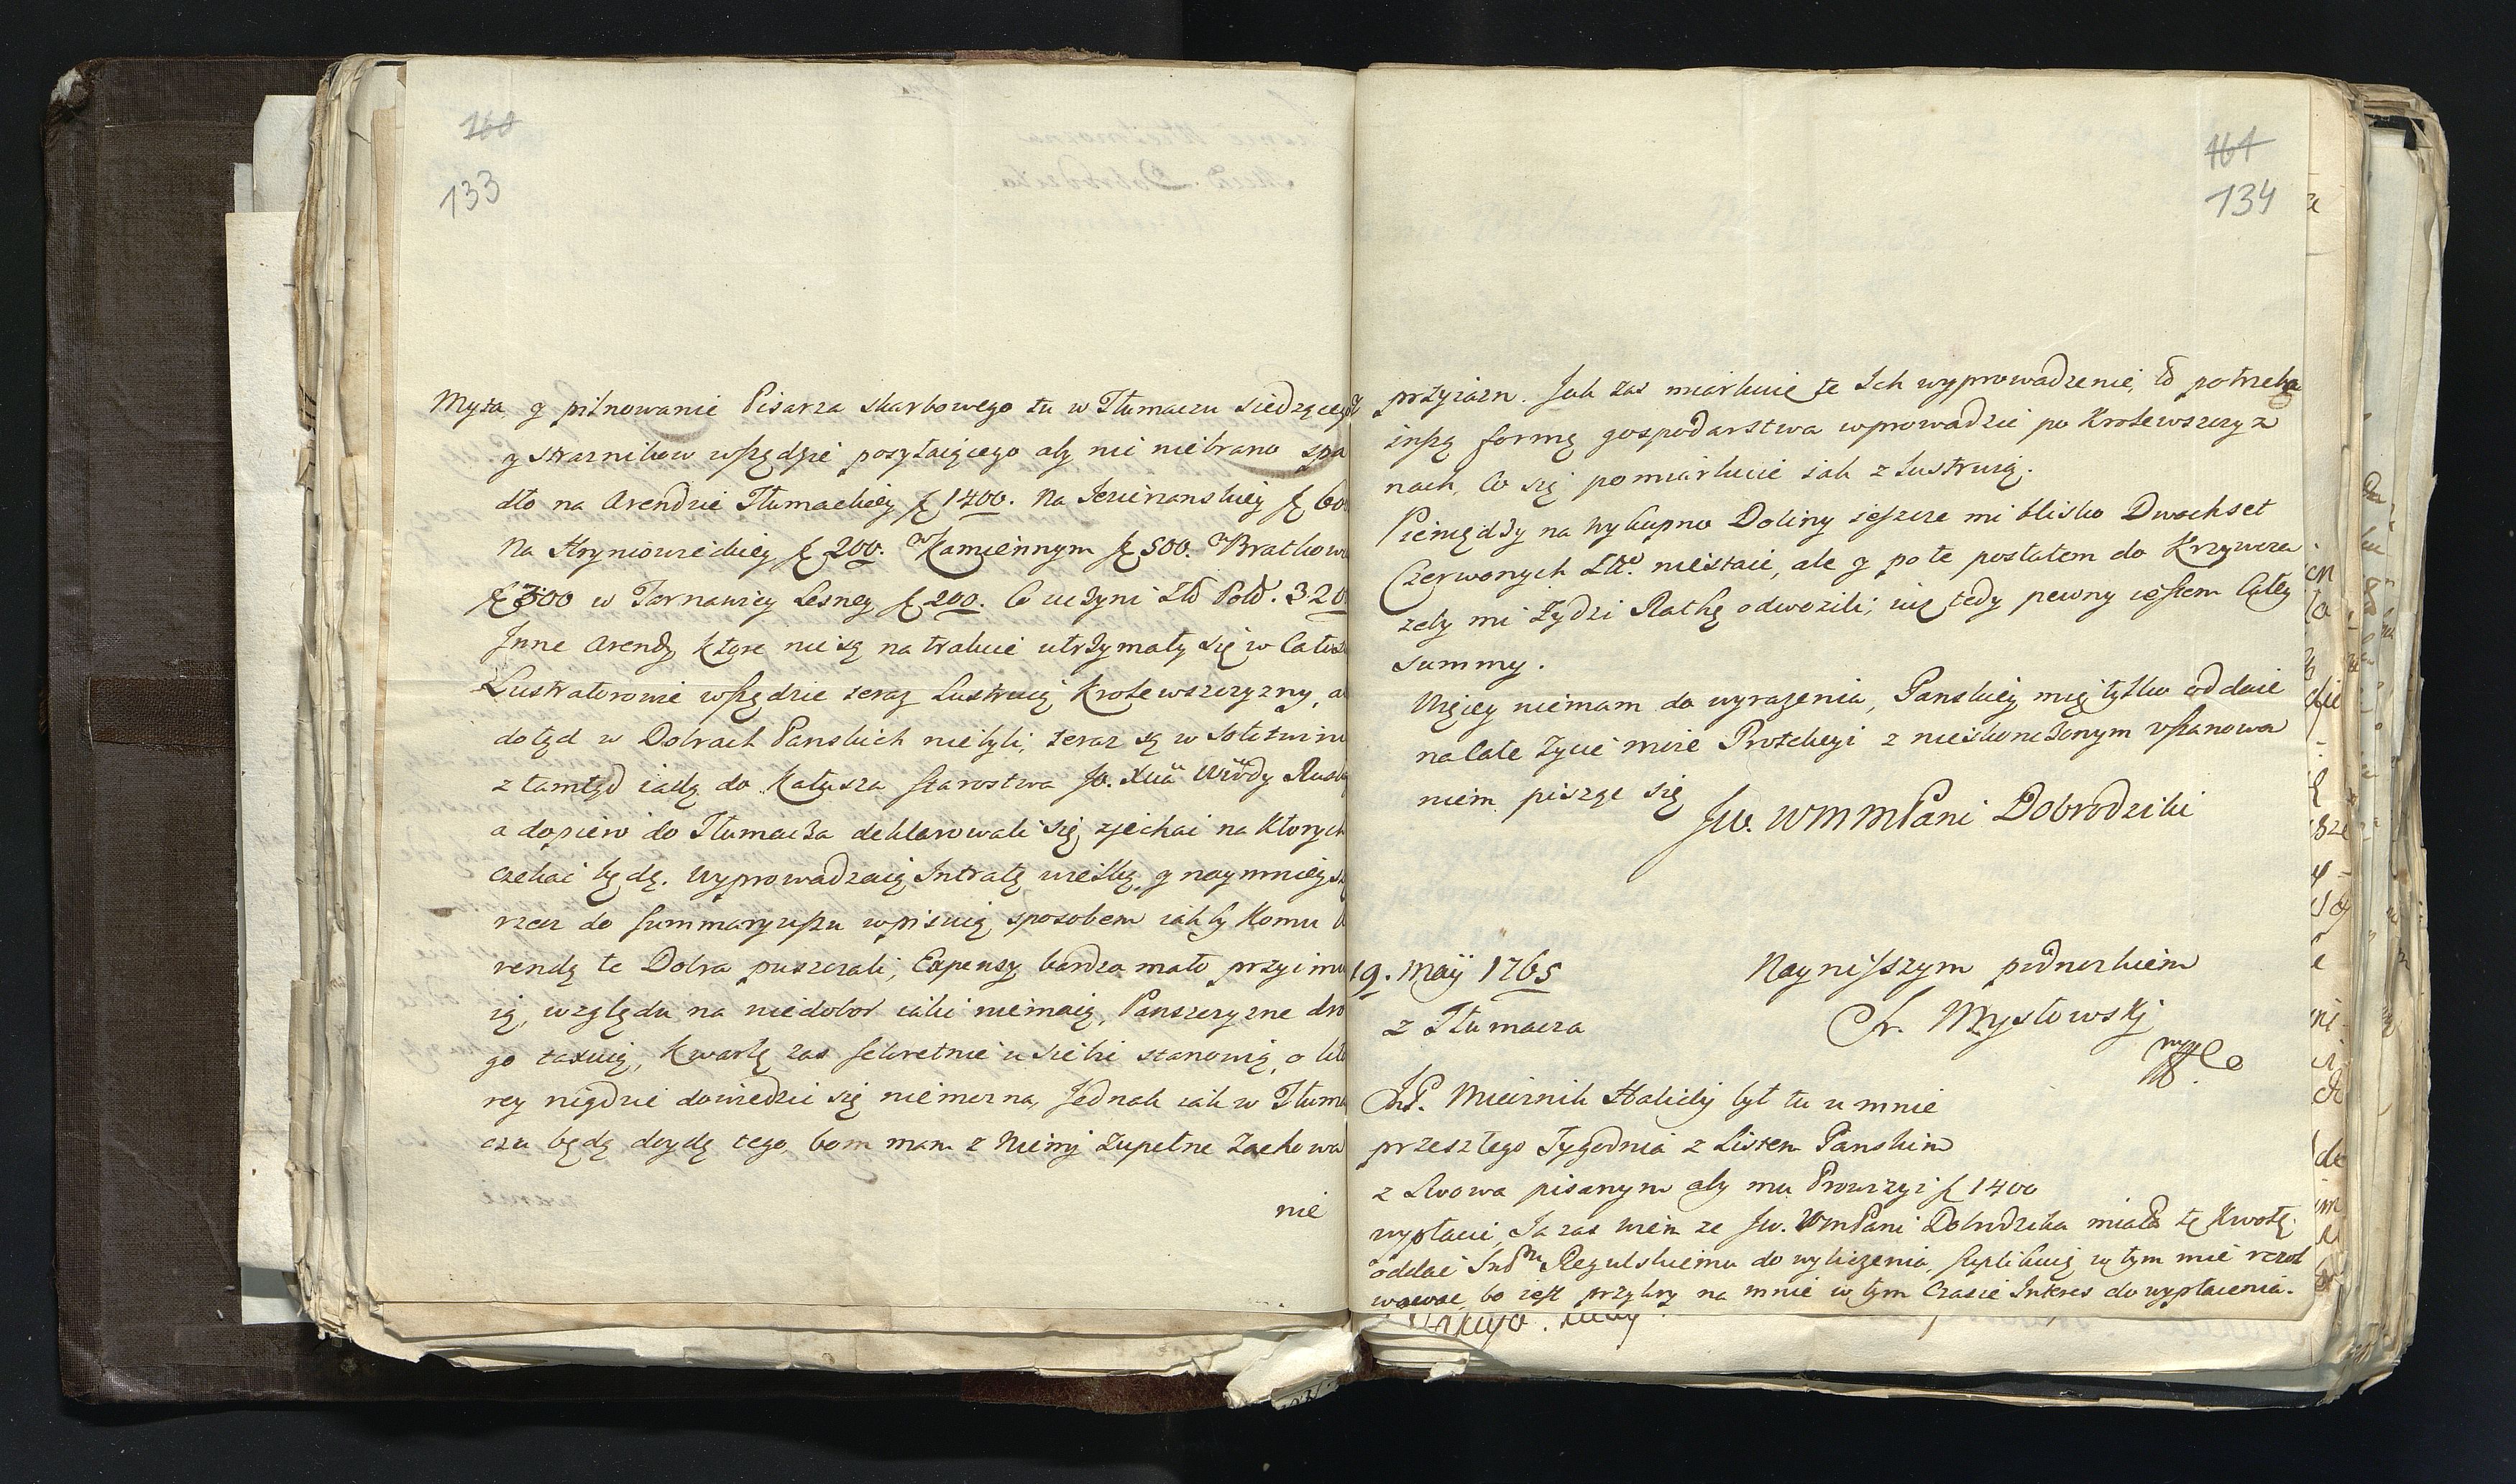 160
133
Myta, y pilnowanie Pisarza skarbowego tu w Tłumaczu siedzącego
y Straznikow wszędzie posyłaiącego aby nic niebrano spa
dło na Arendzie Tłumackiey f 1400. Na Jezierzanskiey f 60
Na Hryniowieckiey f 200. w Kamiennym f 500. w Bratkow
f 300 w Tarnawicy Lesney f 200. Co uczyni Zło Pold. 320
Inne Arendy ktore nie są na trakcie utrzymały się w Całos
Lustratorowie wszędzie teraz Lustruią Krolewszczyzny, a
dotąd w Dobrach Panskich niebyli, teraz są w Sołotwinie
z tamtąd iadą do Kałusza Starostwa Jo. Xcia Wdy Rusk
a dopiero do Tłumacza deklarowali się zjechac na Ktorych
czekac będę. Wyprowadzaią Intratę wielką, y naymnieysz
rzecz do Summaryuszu wpisuią sposobem iak by Komu
rendę te Dobra puszczali, Expensy bardzo mało przyimu
ią, względu na niedobor iakie niemaią, Panszczyzne dro
go taxuią, Kwartę zas sekretnie u siebie stanowią, o kto
rey nigdzie dowiedzic się niemozna, Jednak iak w Tłuma
czu będę doydę tego, bom mam z Niemi zupełne zachowa
nie
161
134
przyiazn. Jak zas miarkuię te Ich wyprowadzenie, to potrzeba
inszą formę gospodarstwa wprowadzic po Krolewszczyz
nach, Co się pomiarkuie iak zlustruią.
Pieniędzy na wykupno Doliny ieszcze mi blisko Dwochset
Czerwonych Zło. niestaie, ale y po te posłałem do Krzywcza
zeby mi Zydzi Ratkę odwozili, iuz tedy pewny iestem Całey
Summy.
Więcey niemam do wyrazenia, Panskiey mię tylko oddaie
na Całe Zycie moie Protekcyi z nieskonczonym uszanowa
niem pisząc się
Jw. WMMPani Dobrodziki
19. Maÿ 1765
z Tłumacza
Nayniszszym podnozkiem
Fr. Mysłowski
mpp
JP. Miernik Halicki był tu u mnie
przeszłego Tygodnia z Listem Panskim
z Lwowa pisanym aby mu Prowizyi f 1400
wypłacic, Ja zas wiem ze Jw. WmPani Dobrodzika miała tę Kwotę
oddac ImPu Regulskiemu do wyliczenia, supplikuię w tym mie rezol
wowac, bo iest przykry na mnie w tym Czasie Interes do wypłacenia.